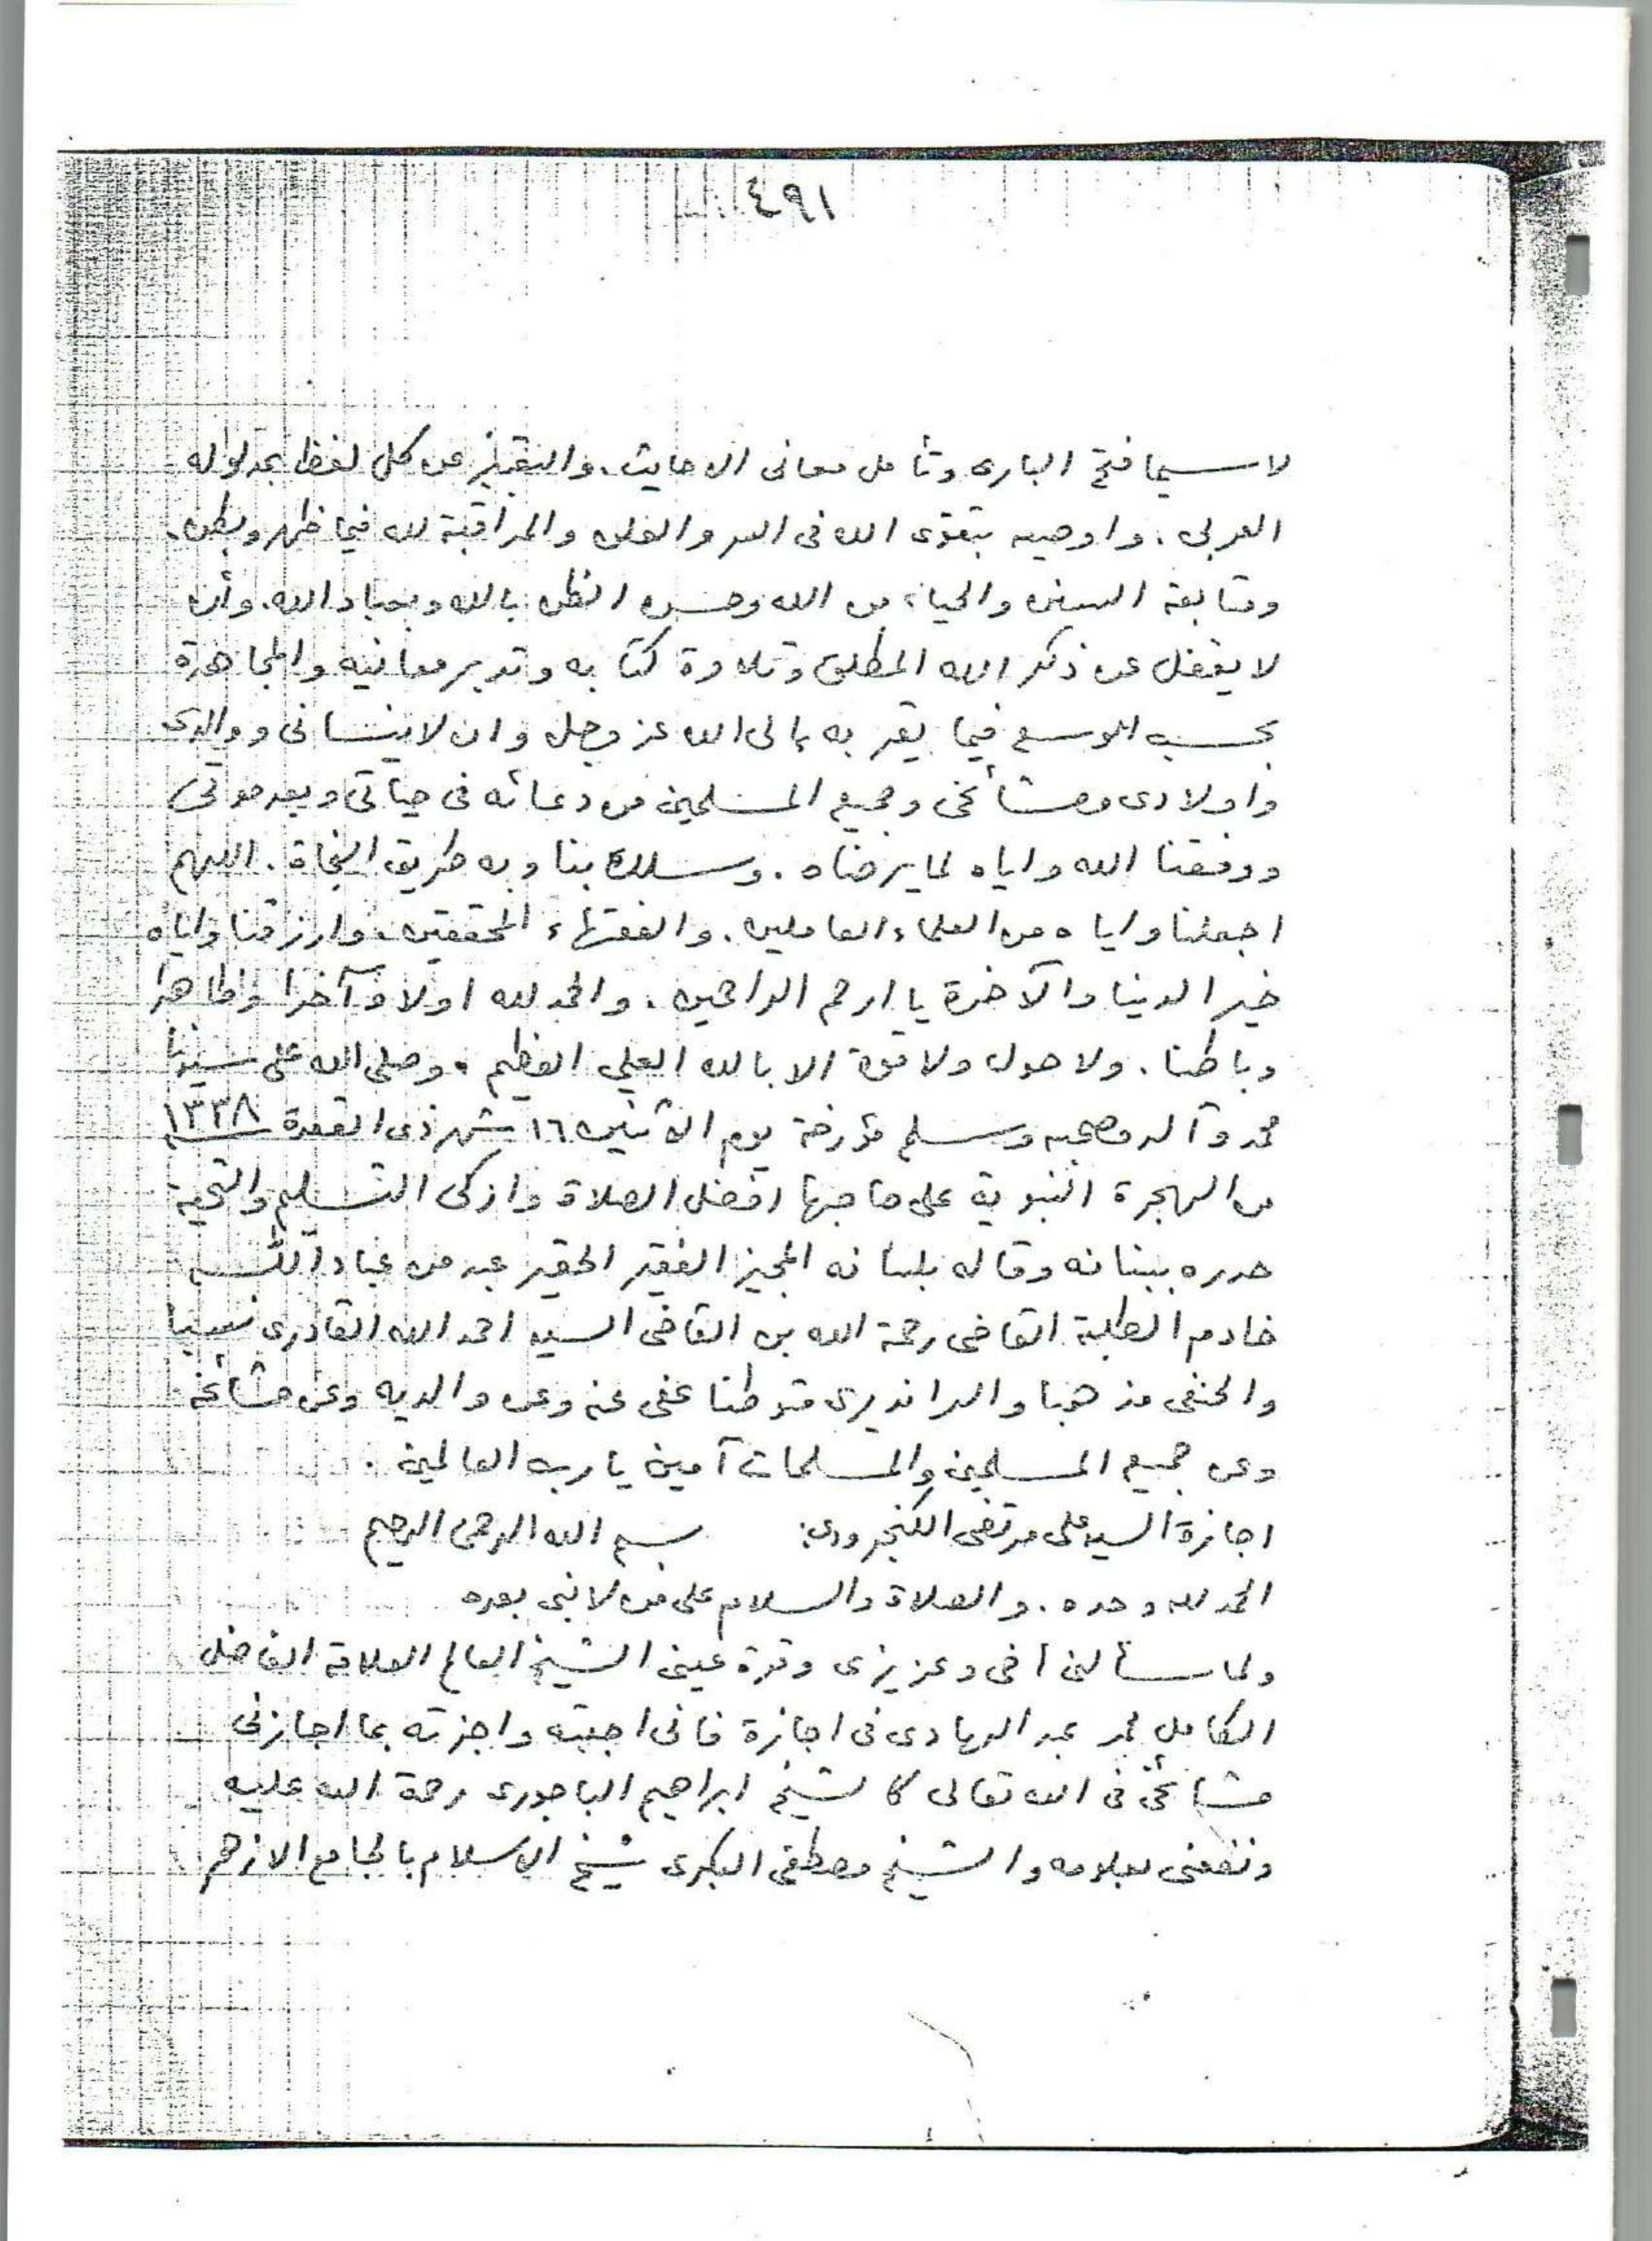 ٤٩١
لاسيما فتح البارى وتأمل معانى الاحايث. والتعبير عن كل لفظ بمدلوله
العربى. واوصيه بتقوى الله فى السر والعلن والمراقبة لله فيما ظهر وبطن.
ومتابعة السنن والحياء من الله وحسن الظن بالله وبعباد الله. وأن
لا يغفل عن ذكر الله المطلق وتلاوة كتابه وتدبر معانيه والمجاهدة
بحسب الوسع فيما يقربه الى الله عز وجل وان لا ينسانى ووالدى
واولادى ومشائخى وجميع المسلمين من دعائه فى حياتى وبعد موتى
ووفقنا الله واياه لما يرضاه. وسلك بنا وبه طريق النجاة. اللهم
اجعلنا واياه من العلماء العاملين. والفقهاء المحققين. وارزقنا واياه
خير الدنيا والآخرة يا ارحم الراحمين. والحمد لله اولا وآخرا وظاهرا
وباطنا. ولا حول ولا قوة الا بالله العلي العظيم. وصلى الله على سيدنا
محمد وآله وصحبه وسلم مؤرخة يوم الاثنين ١٦ شهر ذى القعدة ١٣٣٨
من الهجرة النبوية على صاحبها افضل الصلاة وازكى التسليم والتحية
حرره ببنانه وقاله بلسانه المجيز الفقير الحقير عبد من عباد الله
خادم الطلبة القاضى رحمة الله بن القاضى السيد احمد الله القادرى نسبا
والحنفى مذهبا والراندیرى متوطنا عفى عنه وعن والديه وعن مشائخه
وعن جميع المسلمين والمسلمات آمين يا رب العالمين.
اجازة السيد على مرتضى الكنجرودى: بسم الله الرحمن الرحيم
الحمد لله وحده. والصلاة والسلام على من لا نبى بعده
ولما سألنى أخى وعزيزى وقرة عينى الشيخ العالم العلامة الفاضل
الكامل محمد عبد الهادى فى اجازة فانى اجبته واجزته بما اجازنى
مشائخى فى الله تعالى كالشيخ ابراهيم الباجورى رحمة الله عليه
ونفعنى بعلومه والشيخ مصطفى البكرى شيخ الاسلام بالجامع الازهر